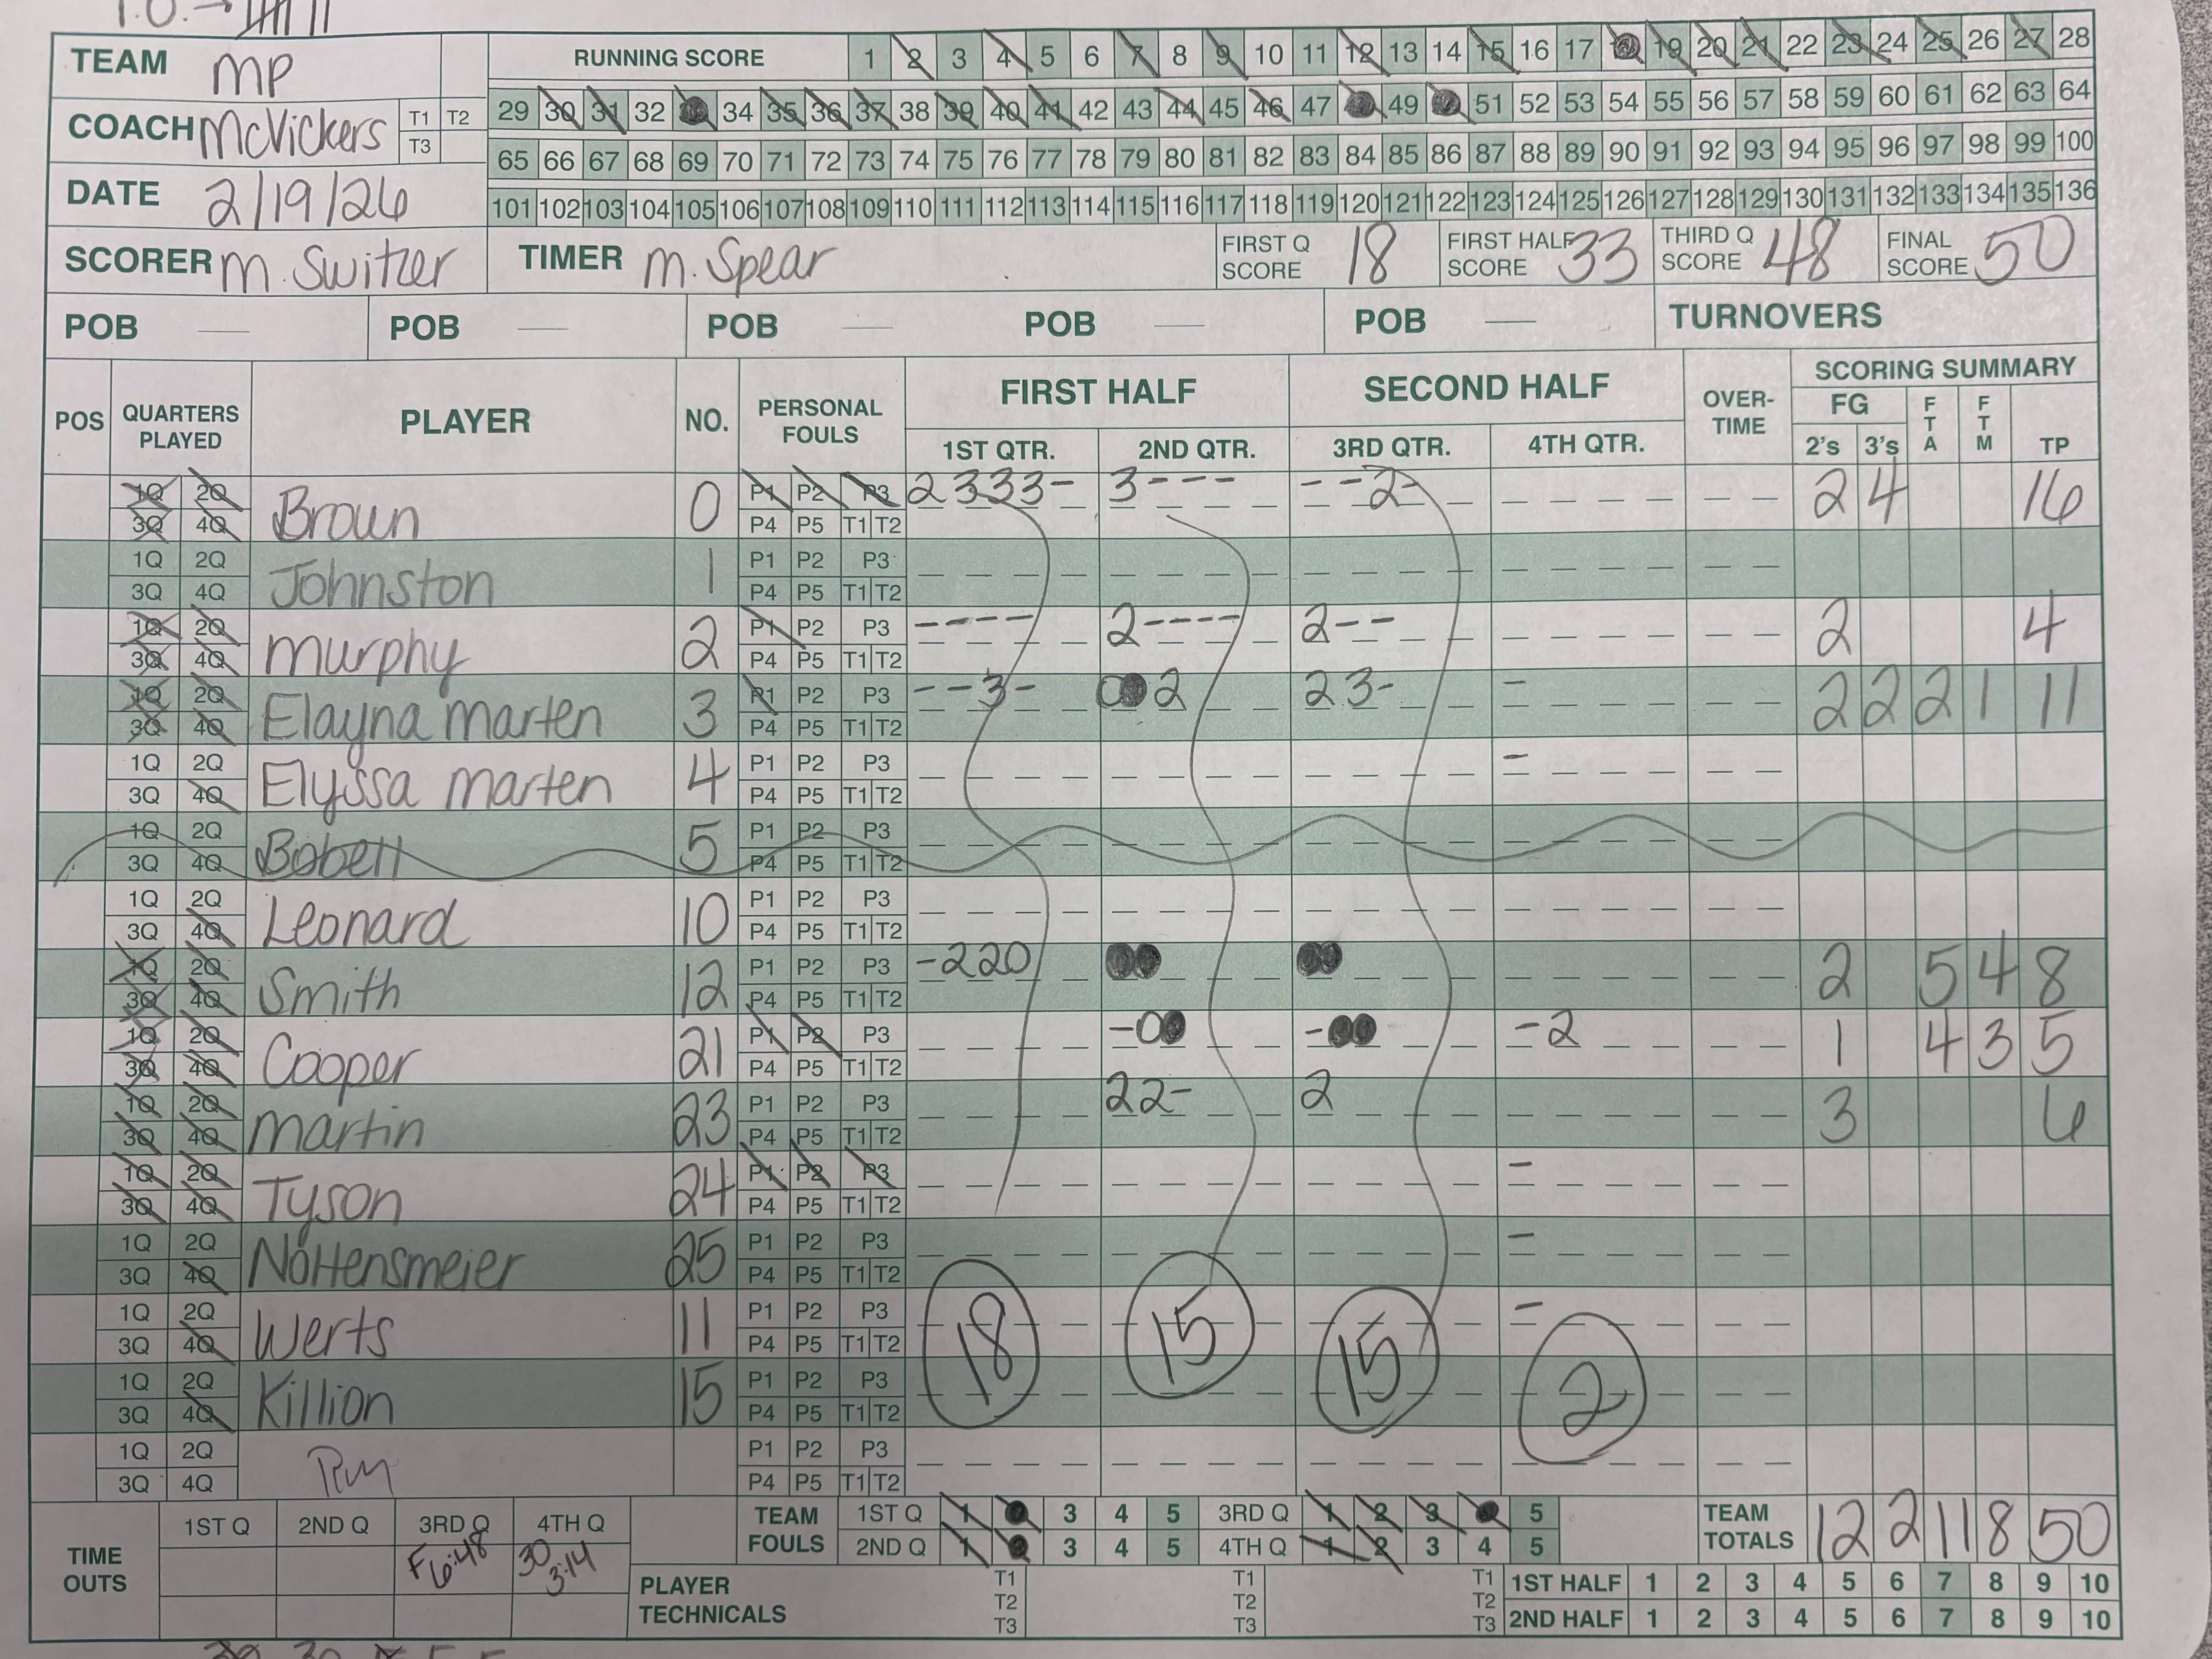 T.O. →
TEAM MP
RUNNING SCORE 1 2 3 4 5 6 7 8 9 10 11 12 13 14 15 16 17 18 19 20 21 22 23 24 25 26 27 28
COACH McVickers T1 T2 T3
29 30 31 32 34 35 36 37 38 39 40 41 42 43 44 45 46 47 49 51 52 53 54 55 56 57 58 59 60 61 62 63 64
65 66 67 68 69 70 71 72 73 74 75 76 77 78 79 80 81 82 83 84 85 86 87 88 89 90 91 92 93 94 95 96 97 98 99 100
DATE 2/19/26
101 102 103 104 105 106 107 108 109 110 111 112 113 114 115 116 117 118 119 120 121 122 123 124 125 126 127 128 129 130 131 132 133 134 135 136
SCORER M. Switzer TIMER M. Spear FIRST Q SCORE 18 FIRST HALF SCORE 33 THIRD Q SCORE 48 FINAL SCORE 50
POB — POB — POB — POB — POB — TURNOVERS
POS QUARTERS PLAYED PLAYER NO. PERSONAL FOULS FIRST HALF SECOND HALF OVER-TIME SCORING SUMMARY
FG FTA FTM TP
1ST QTR. 2ND QTR. 3RD QTR. 4TH QTR. 2's 3's
1Q 2Q 3Q 4Q Brown 0 P1 P2 P3 P4 P5 T1 T2 2333- 3--- --2- 2 4 16
1Q 2Q 3Q 4Q Johnston 1 P1 P2 P3 P4 P5 T1 T2
1Q 2Q 3Q 4Q Murphy 2 P1 P2 P3 P4 P5 T1 T2 ---- 2---- 2-- 2 4
1Q 2Q 3Q 4Q Elayna Marten 3 P1 P2 P3 P4 P5 T1 T2 --3- 0●2 23- - 2 2 2 1 11
1Q 2Q 3Q 4Q Elyssa Marten 4 P1 P2 P3 P4 P5 T1 T2 -
1Q 2Q 3Q 4Q Bobell 5 P1 P2 P3 P4 P5 T1 T2
1Q 2Q 3Q 4Q Leonard 10 P1 P2 P3 P4 P5 T1 T2
1Q 2Q 3Q 4Q Smith 12 P1 P2 P3 P4 P5 T1 T2 -220 ●● ●● 2 5 4 8
1Q 2Q 3Q 4Q Cooper 21 P1 P2 P3 P4 P5 T1 T2 -0● -●● -2 1 4 3 5
1Q 2Q 3Q 4Q Martin 23 P1 P2 P3 P4 P5 T1 T2 22- 2 3 6
1Q 2Q 3Q 4Q Tyson 24 P1 P2 P3 P4 P5 T1 T2 -
1Q 2Q 3Q 4Q Nottensmeier 25 P1 P2 P3 P4 P5 T1 T2 -
1Q 2Q 3Q 4Q Werts 11 P1 P2 P3 P4 P5 T1 T2 18 15 15 -
1Q 2Q 3Q 4Q Killion 15 P1 P2 P3 P4 P5 T1 T2 2
1Q 2Q 3Q 4Q P1 P2 P3 P4 P5 T1 T2
TIME OUTS 1ST Q 2ND Q 3RD Q 4TH Q
F 6:48 30 3:14
TEAM FOULS 1ST Q 1 3 4 5 3RD Q 1 2 3 5
2ND Q 1 3 4 5 4TH Q 1 2 3 4 5
TEAM TOTALS 12 2 11 8 50
PLAYER TECHNICALS T1 T2 T3 T1 T2 T3 T1 T2 T3
1ST HALF 1 2 3 4 5 6 7 8 9 10
2ND HALF 1 2 3 4 5 6 7 8 9 10